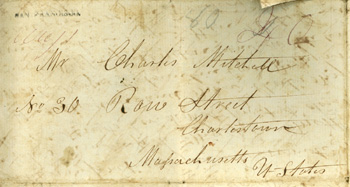 SAN FRANCISCO
Aug 1
40
Mr Charles Mitchell
No 30 Rowe Street
Charlestown
Massachusetts
U States